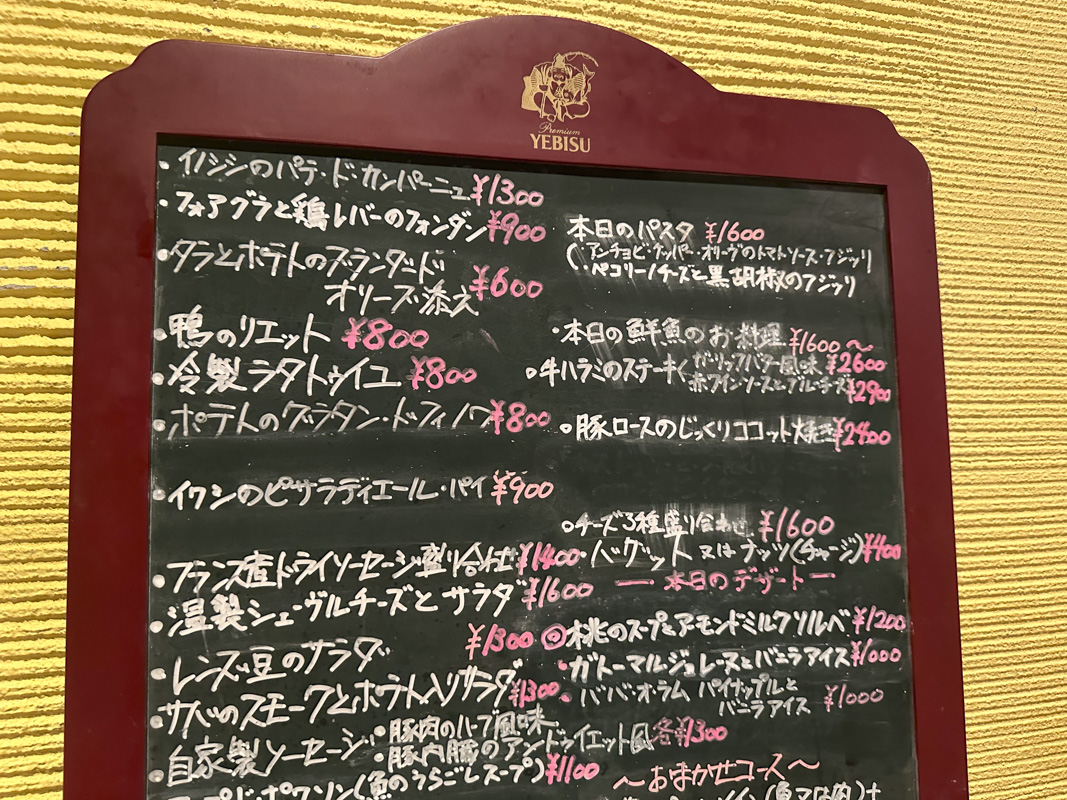 Premium
YEBISU
・イノシシのパテ・ド・カンパーニュ ¥1300
・フォアグラと鶏レバーのフォンダン ¥900
・タラとポテトのブランダード
オリーブ添え ¥600
・鴨のリエット ¥800
・冷製ラタトゥイユ ¥800
・ポテトのグラタン・ドフィノワ ¥800
・イワシのピサラディエール・パイ ¥900
・フランス産ドライソーセージ盛り合せ ¥1400
・温製シェーヴルチーズとサラダ ¥1600
・レンズ豆のサラダ ¥1300
・サバのスモークとポテト入りサラダ ¥1300
・自家製ソーセージ ・豚肉のハーブ風味
・豚内臓のアンドゥイエット風 各¥1300
スープ・ド・ポワソン(魚のうらごしスープ) ¥1100
本日のパスタ ¥1600
(・アンチョビ・ケッパー・オリーヴのトマトソース・フジッリ
・ペコリーノチーズと黒胡椒のフジッリ
・本日の鮮魚のお料理 ¥1600〜
・牛ハラミのステーキ( ガーリックバター風味 ¥2600
赤ワインソースとブルーチーズ ¥2900
・豚ロースのじっくりココット焼き ¥2400
・チーズ3種盛り合わせ ¥1600
・バゲット 又は ナッツ(チャージ) ¥400
ー 本日のデザート ー
◎桃のスープとアモンドミルクソルベ ¥1200
・ガトーマルジョレーヌとバニラアイス ¥1000
・ババ・オ・ラム パイナップルと
バニラアイス ¥1000
〜おまかせコース〜